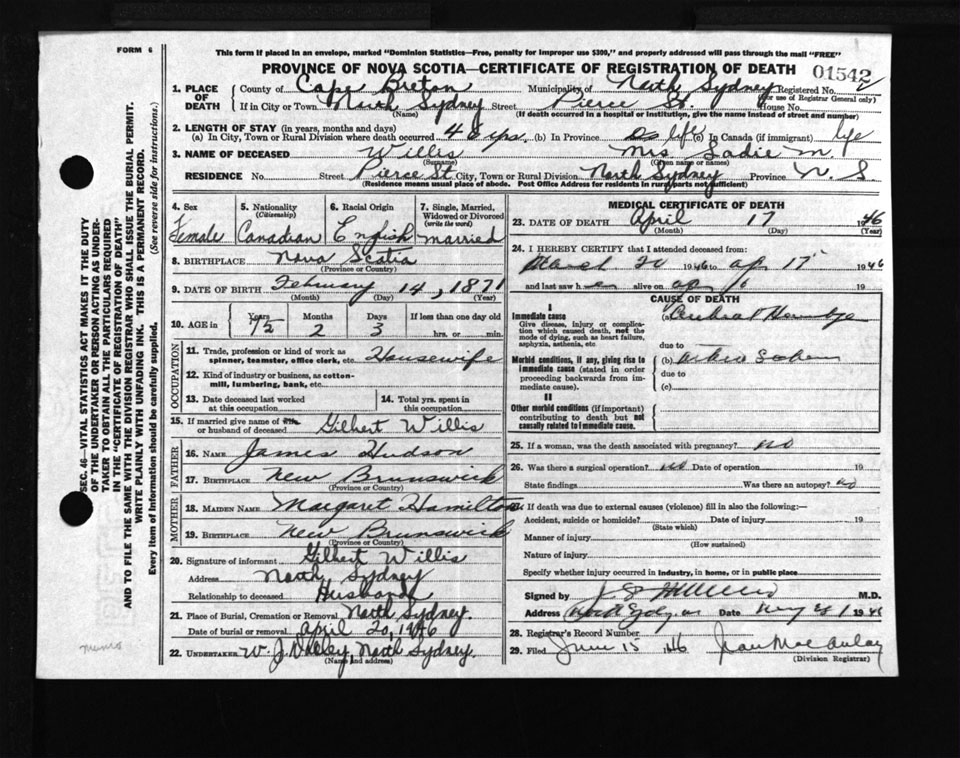 FORM 6
This form if placed in an envelope, marked "Dominion Statistics—Free, penalty for improper use $300," and properly addressed will pass through the mail "FREE"
PROVINCE OF NOVA SCOTIA—CERTIFICATE OF REGISTRATION OF DEATH
01542
1. PLACE OF DEATH
County of Cape Breton Municipality of North Sydney Registered No.
(For use of Registrar General only)
If in City or Town North Sydney Street Pierce St. House No.
(Name) (If death occurred in a hospital or institution, give the name instead of street and number)
2. LENGTH OF STAY (in years, months and days)
(a) In City, Town or Rural Division where death occurred (b) In Province life (c) In Canada (if immigrant) life
3. NAME OF DECEASED Willis Mrs Sadie M.
(Surname) (Given name or names)
RESIDENCE No. Street Pierce St City, Town or Rural Division North Sydney Province N. S.
(Residence means usual place of abode. Post Office Address for residents in rural parts not sufficient)
4. Sex Female
5. Nationality (Citizenship) Canadian
6. Racial Origin English
7. Single, Married, Widowed or Divorced (write the word) married
8. BIRTHPLACE Nova Scotia
(Province or Country)
9. DATE OF BIRTH February 14, 1871
(Month) (Day) (Year)
10. AGE in Years 75 Months 2 Days 3 If less than one day old hrs. or min.
OCCUPATION
11. Trade, profession or kind of work as spinner, teamster, office clerk, etc. Housewife
12. Kind of industry or business, as cotton-mill, lumbering, bank, etc.
13. Date deceased last worked at this occupation
14. Total yrs. spent in this occupation
15. If married give name of wife or husband of deceased Gilbert Willis
FATHER
16. NAME James Hudson
17. BIRTHPLACE New Brunswick
(Province or Country)
MOTHER
18. MAIDEN NAME Margaret Hamilton
19. BIRTHPLACE New Brunswick
(Province or Country)
20. Signature of informant Gilbert Willis
Address North Sydney
Relationship to deceased Husband
21. Place of Burial, Cremation or Removal North Sydney.
Date of burial or removal April 20, 1946
22. UNDERTAKER W. J. North Sydney.
(Name and address)
MEDICAL CERTIFICATE OF DEATH
23. DATE OF DEATH April 17 1946
(Month) (Day) (Year)
24. I HEREBY CERTIFY that I attended deceased from:
March 20 1946 to Ap 17 1946
and last saw her alive on Ap 16 19
CAUSE OF DEATH
I
Immediate cause (a) Cerebral
Give disease, injury or complication which caused death, not the mode of dying, such as heart failure, asphyxia, asthenia, etc.
due to
Morbid conditions, if any, giving rise to immediate cause (stated in order proceeding backwards from immediate cause). (b)
due to
(c)
II
Other morbid conditions (if important) contributing to death but not causally related to immediate cause.
25. If a woman, was the death associated with pregnancy? no
26. Was there a surgical operation? no Date of operation 19
State findings Was there an autopsy? no
27. If death was due to external causes (violence) fill in also the following:—
Accident, suicide or homicide? Date of injury 19
(State which)
Manner of injury
(How sustained)
Nature of injury
Specify whether injury occurred in industry, in home, or in public place
Signed by M.D.
Address Date May 1946
28. Registrar's Record Number
29. Filed June 15 1946 Jean MacAulay
(Division Registrar)
SEC. 46—VITAL STATISTICS ACT MAKES IT THE DUTY
OF THE UNDERTAKER OR PERSON ACTING AS UNDER-
TAKER TO OBTAIN ALL THE PARTICULARS REQUIRED
IN THE "CERTIFICATE OF REGISTRATION OF DEATH"
AND TO FILE THE SAME WITH THE DIVISION REGISTRAR WHO SHALL ISSUE THE BURIAL PERMIT.
WRITE PLAINLY WITH UNFADING INK. THIS IS A PERMANENT RECORD.
Every item of information should be carefully supplied. (See reverse side for instructions.)